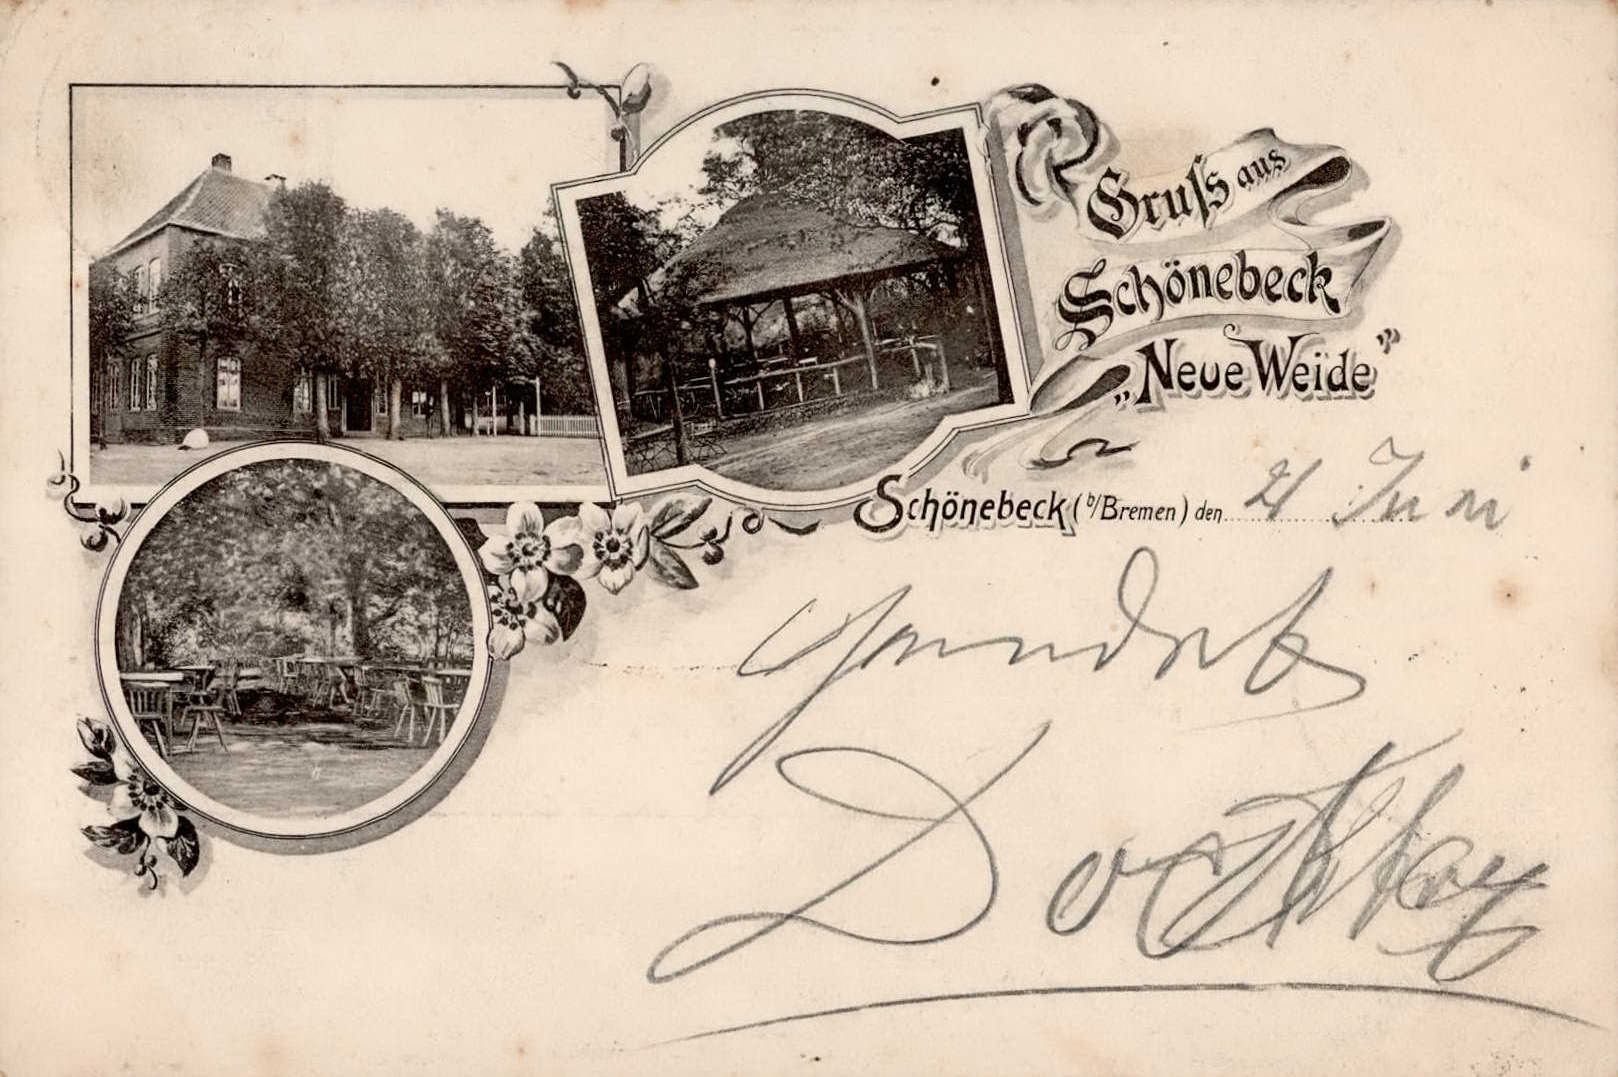 Gruſs aus
Schönebeck
„Neue Weide”
Schönebeck (b/Bremen) den 21 Juni